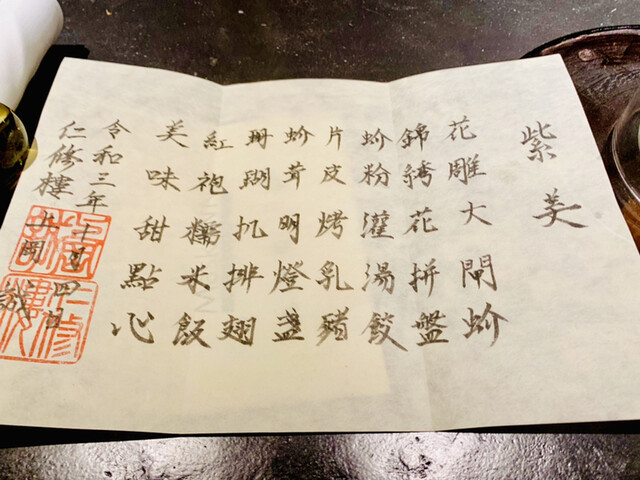 紫美
花雕大閘蚧
錦綉花拼盤
蚧粉灌湯餃
片皮烤乳豬
蚧茸明燈盞
珊瑚扒排翅
紅袍糯米飯
美味甜點心
令和三年十月四日
仁修樓 上岡誠